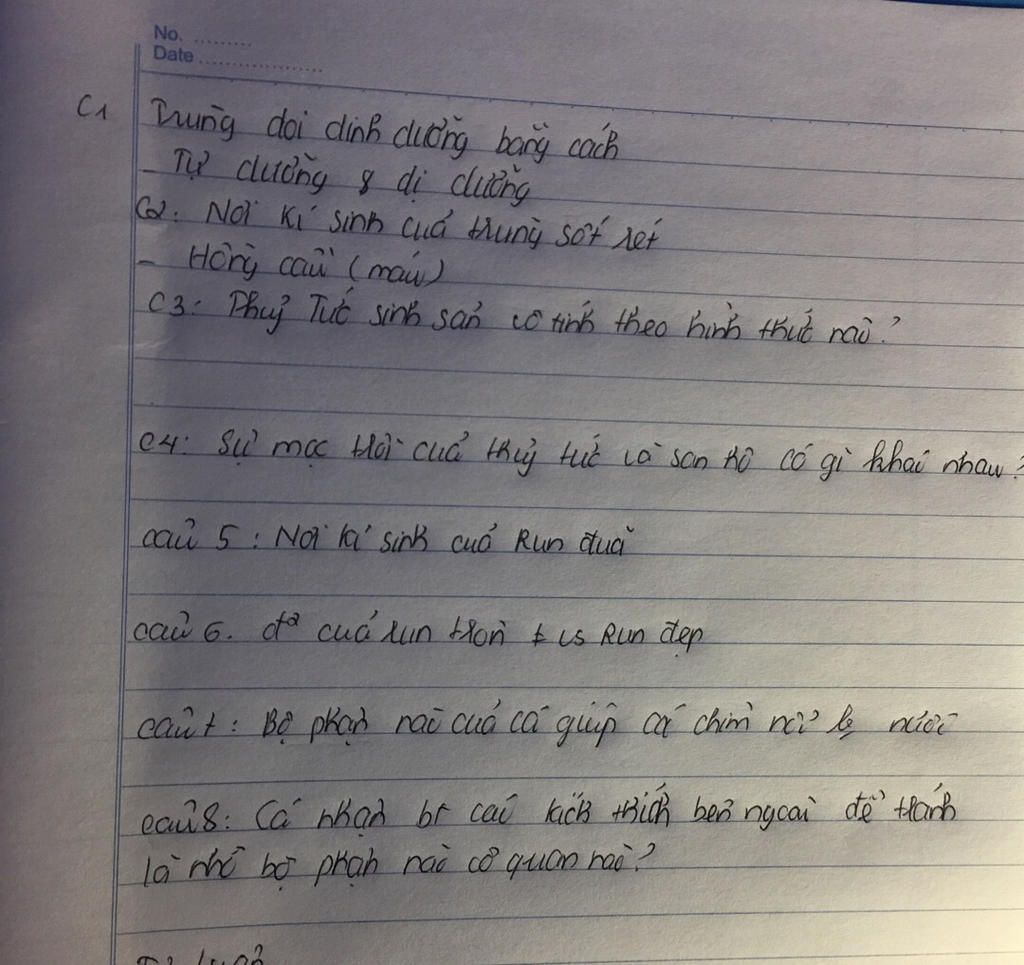 No. .........
Date ...................
C1 Trùng doi dinh dưỡng bằng cách
- Tự dưỡng & dị dưỡng
C2: Nơi kí sinh của trùng sốt rét
- Hồng cầu (máu)
C3: Thuỷ Tức sinh sản vô tính theo hình thức nào?
C4: Sự mọc chồi của thuỷ tức và san hô có gì khác nhau?
câu 5: Nơi kí sinh của Run đũa
câu 6. đ² của run tròn ≠ vs Run dẹp
câu 7: Bộ phận nào của cá giúp cá chìm nổi trg nước
câu 8: Cá nhận bt các kích thích bên ngoài để tránh
là nhờ bộ phận nào cơ quan nào?